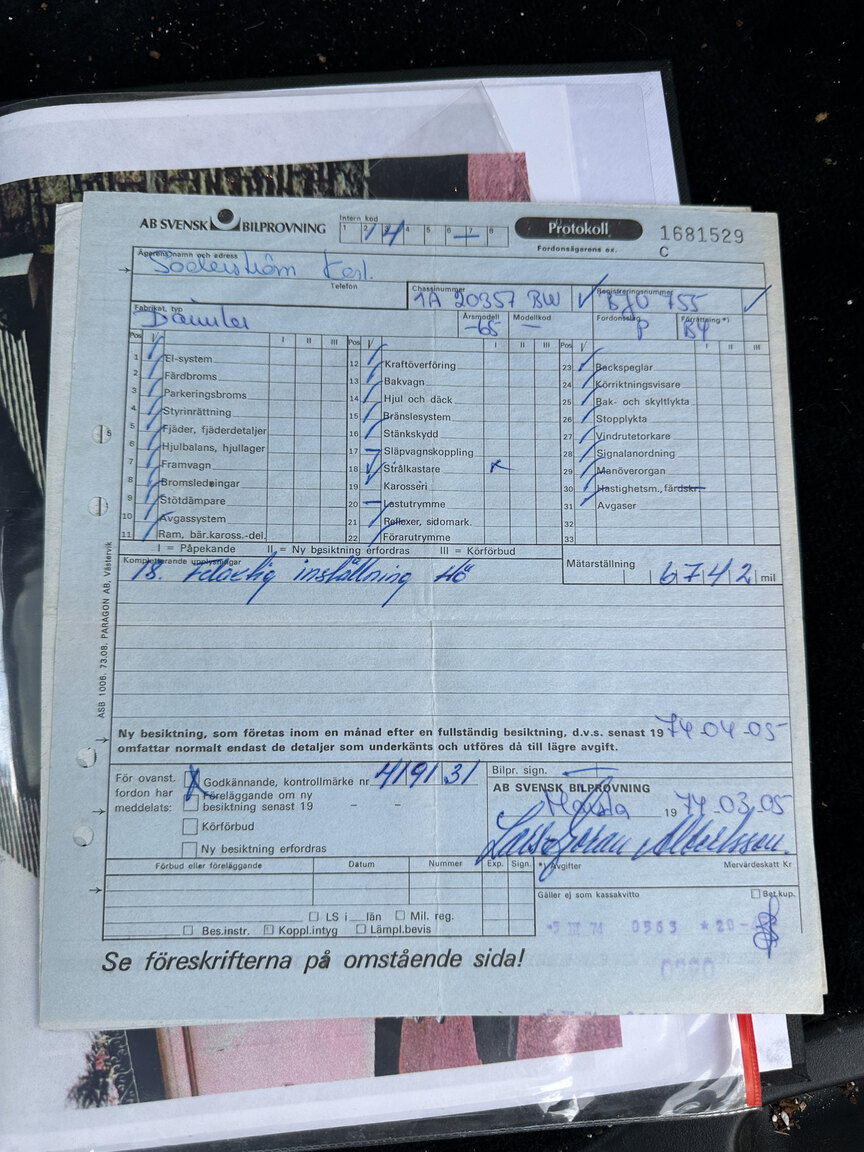 AB SVENSK BILPROVNING
Intern kod
1 2 3 4 5 6 7 8
14
Protokoll
Fordonsägarens ex.
1681529
C
Ägarens namn och adress
Söderström Karl.
Telefon
Chassinummer
1A 20357 BW
Registreringsnummer
BJU 755
Fabrikat, typ
Daimler
Årsmodell
-65
Modellkod
—
Fordonsslag
P
Förrättning *)
B4
Pos I II III Pos I II III Pos I II III
1 El-system
2 Färdbroms
3 Parkeringsbroms
4 Styrinrättning
5 Fjäder, fjäderdetaljer
6 Hjulbalans, hjullager
7 Framvagn
8 Bromsledningar
9 Stötdämpare
10 Avgassystem
11 Ram, bär.kaross.-del.
12 Kraftöverföring
13 Bakvagn
14 Hjul och däck
15 Bränslesystem
16 Stänkskydd
17 Släpvagnskoppling
18 Strålkastare
19 Karosseri
20 Lastutrymme
21 Reflexer, sidomark.
22 Förarutrymme
23 Backspeglar
24 Körriktningsvisare
25 Bak- och skyltlykta
26 Stopplykta
27 Vindrutetorkare
28 Signalanordning
29 Manöverorgan
30 Hastighetsm., färdskr.
31 Avgaser
32
33
I = Påpekande II = Ny besiktning erfordras III = Körförbud
Kompletterande upplysningar
18. felaktig inställning Hö
Mätarställning
6742 mil
ASB 1006. 73.08. PARAGON AB, Västervik
Ny besiktning, som företas inom en månad efter en fullständig besiktning, d.v.s. senast 19 74-04-05
omfattar normalt endast de detaljer som underkänts och utföres då till lägre avgift.
För ovanst.
fordon har
meddelats:
Godkännande, kontrollmärke nr 419131
Föreläggande om ny
besiktning senast 19 – –
Körförbud
Ny besiktning erfordras
Bilpr. sign.
AB SVENSK BILPROVNING
19 74-03-05
Lars-Göran Albertsson.
Förbud eller föreläggande Datum Nummer Exp. Sign.
*) Avgifter Mervärdeskatt Kr
Gäller ej som kassakvitto
Bet.kup.
LS i län Mil. reg.
Bes.instr. Koppl.intyg Lämpl.bevis
-5 III 74 0563 *20-
Se föreskrifterna på omstående sida!